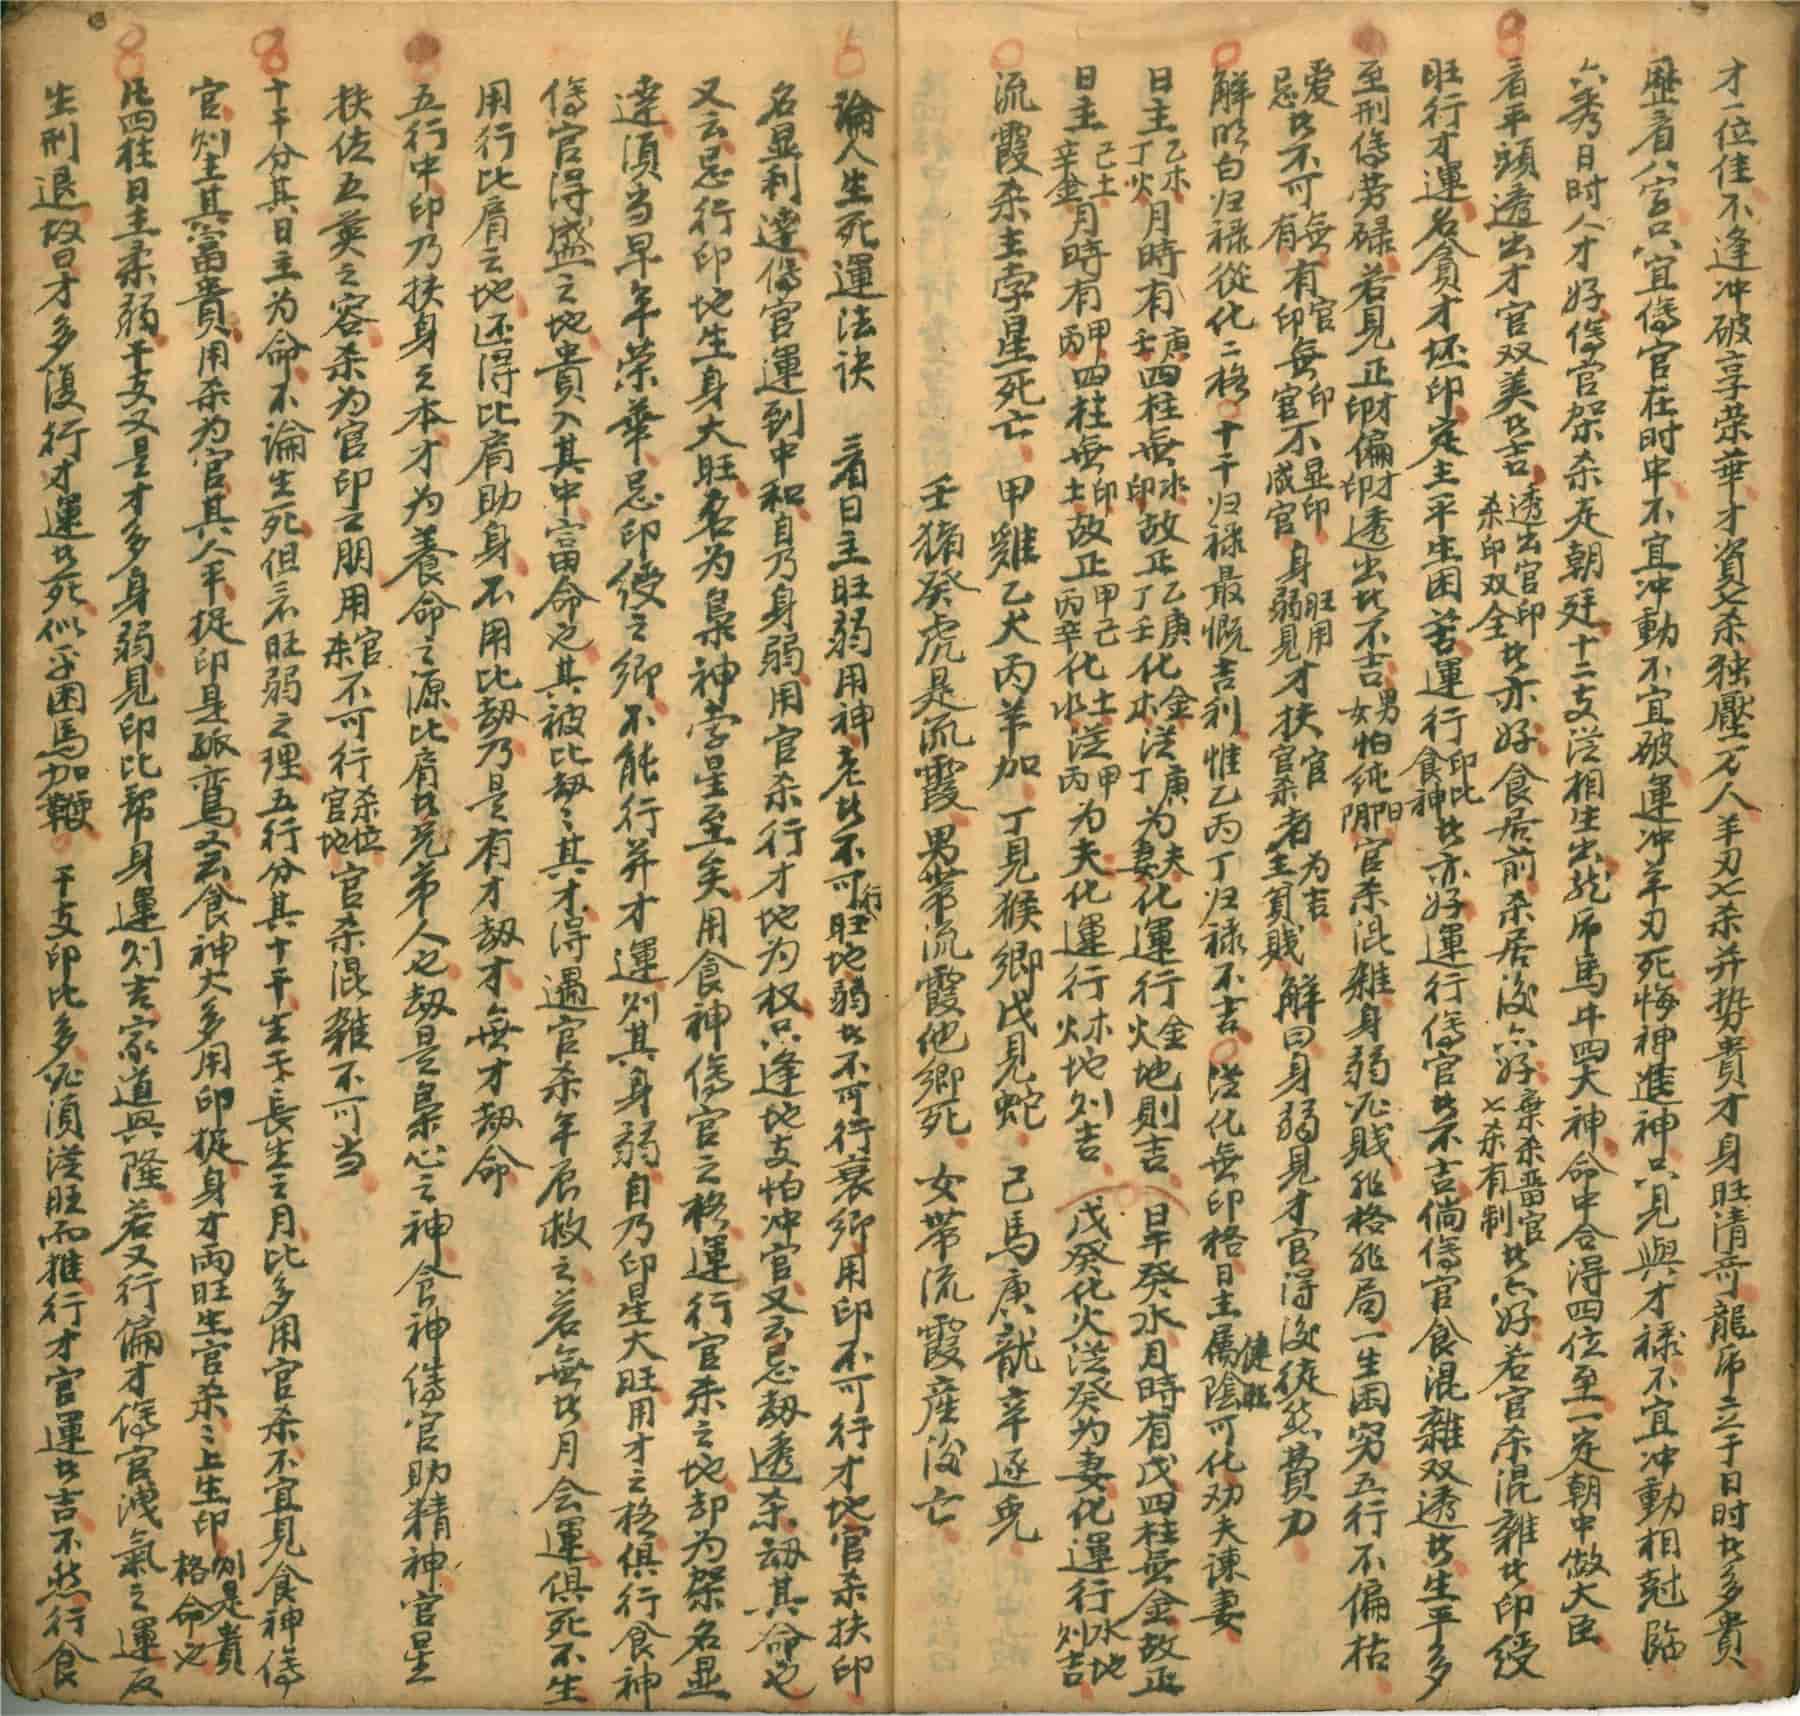 才一位佳不逢冲破享荣華才資七杀独壓万人羊刃七杀并势貴才身旺清奇龍虎立于日时者多貴
歷看八字只宜傷官在时中不宜冲動不宜破運冲羊刃死悔神進神只見與才禄不宜冲動相尅臨
六秀日时人才好傷官架杀定朝廷十二支從相生出龙虎馬牛四大神命中合得四位至一定朝中做大臣
看平頭透出才官双美者吉透出官印杀印双全者亦好食居前杀居後亦好棄杀畄官七杀有制者亦好若官杀混雜者印綬
旺行才運名貪才坏印定主平生困苦運行印比食神者亦好運行傷官者不吉倘傷官食混雜双透者生平多
至刑傷劳碌若見正財偏財印印透出者不吉男怕純陽女怕純陰官杀混雜身弱必賤非格非局一生困穷五行不偏枯
爱忌者不可無有有官印無印官不显印咸官身旺用弱見才扶官官杀者为吉主貧賎解曰身弱見才官得後徒然費力
解明白归禄從化二格十干归禄最慨吉利惟乙丙丁归禄不吉從化無印格日主属陰健旺可化劝夫諫妻
日主乙木丁火月時有庚壬四柱無水印故正乙庚丁壬化金木從庚丁为夫妻化運行金火地則吉日干癸水月時有戊四柱無金故正
日主己土辛金月時有甲丙四柱無印土故正甲己丙辛化土水從甲丙为夫化運行木火地则吉戊癸化火從癸为妻化運行水地则吉
流霞杀主孛星死亡甲雞乙犬丙羊加丁見猴鄉戊見蛇己馬庚龍辛逐兎
壬猪癸虎是流霞男带流霞他鄉死女带流霞産後亡
論人生死運法訣看日主旺弱用神老者不可行旺地弱者不可行衰鄉用印不可行才地官杀扶印
名显利達傷官運到中和自乃身弱用官杀行才地为权只逢地支怕冲官又云忌劫透杀刼其命也
又云忌行印地生身大旺名为梟神孛星至矣用食神傷官之格運行官杀之地却为架名显
達須当早年荣華忌印綬之鄉不能行并才運则其身弱自乃印星大旺用才之格俱行食神
傷官得盛之地貴入其中富命也其被比劫劫其才得遇官杀年辰救之若無者月会運俱死不生
用行比肩之地还得比肩助身不用比劫乃是有才劫才無才劫命
五行中印乃扶身之本才为養命之源比肩者兄弟人也劫是梟心之神食神傷官助精神官星
扶佐五英之容杀为官印之朋用官杀不可行杀位官地官杀混雜不可当
十干分其日主为命不論生死但云不旺弱之理五行分其十干生于長生之月比多用官杀不宜見食神傷
官则主其富貴用杀为官其人平提印是孤鸾又云食神大多用印捉身才両旺生官杀杀上生印则是貴格命也
凡四柱日主柔弱干支又是才多身弱見印比帮身運则吉家道興隆若又行偏才傷官洩氣之運反
生刑退故曰才多復行才運者死似乎困馬加鞭干支印比多必須從旺而推行才官運者吉不然行食